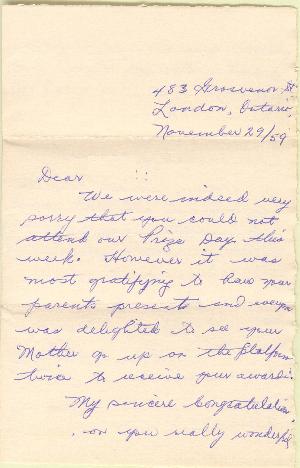 483 Grosvenor St
London, Ontario,
November 29/59
Dear
We were indeed very
sorry that you could not
attend our Prize Day this
week. However it was
most gratifying to have your
parents present and everyone
was delighted to see your
Mother go up on the platform
twice to receive your awards.
My sincere Congratulations,
on you really wonderful